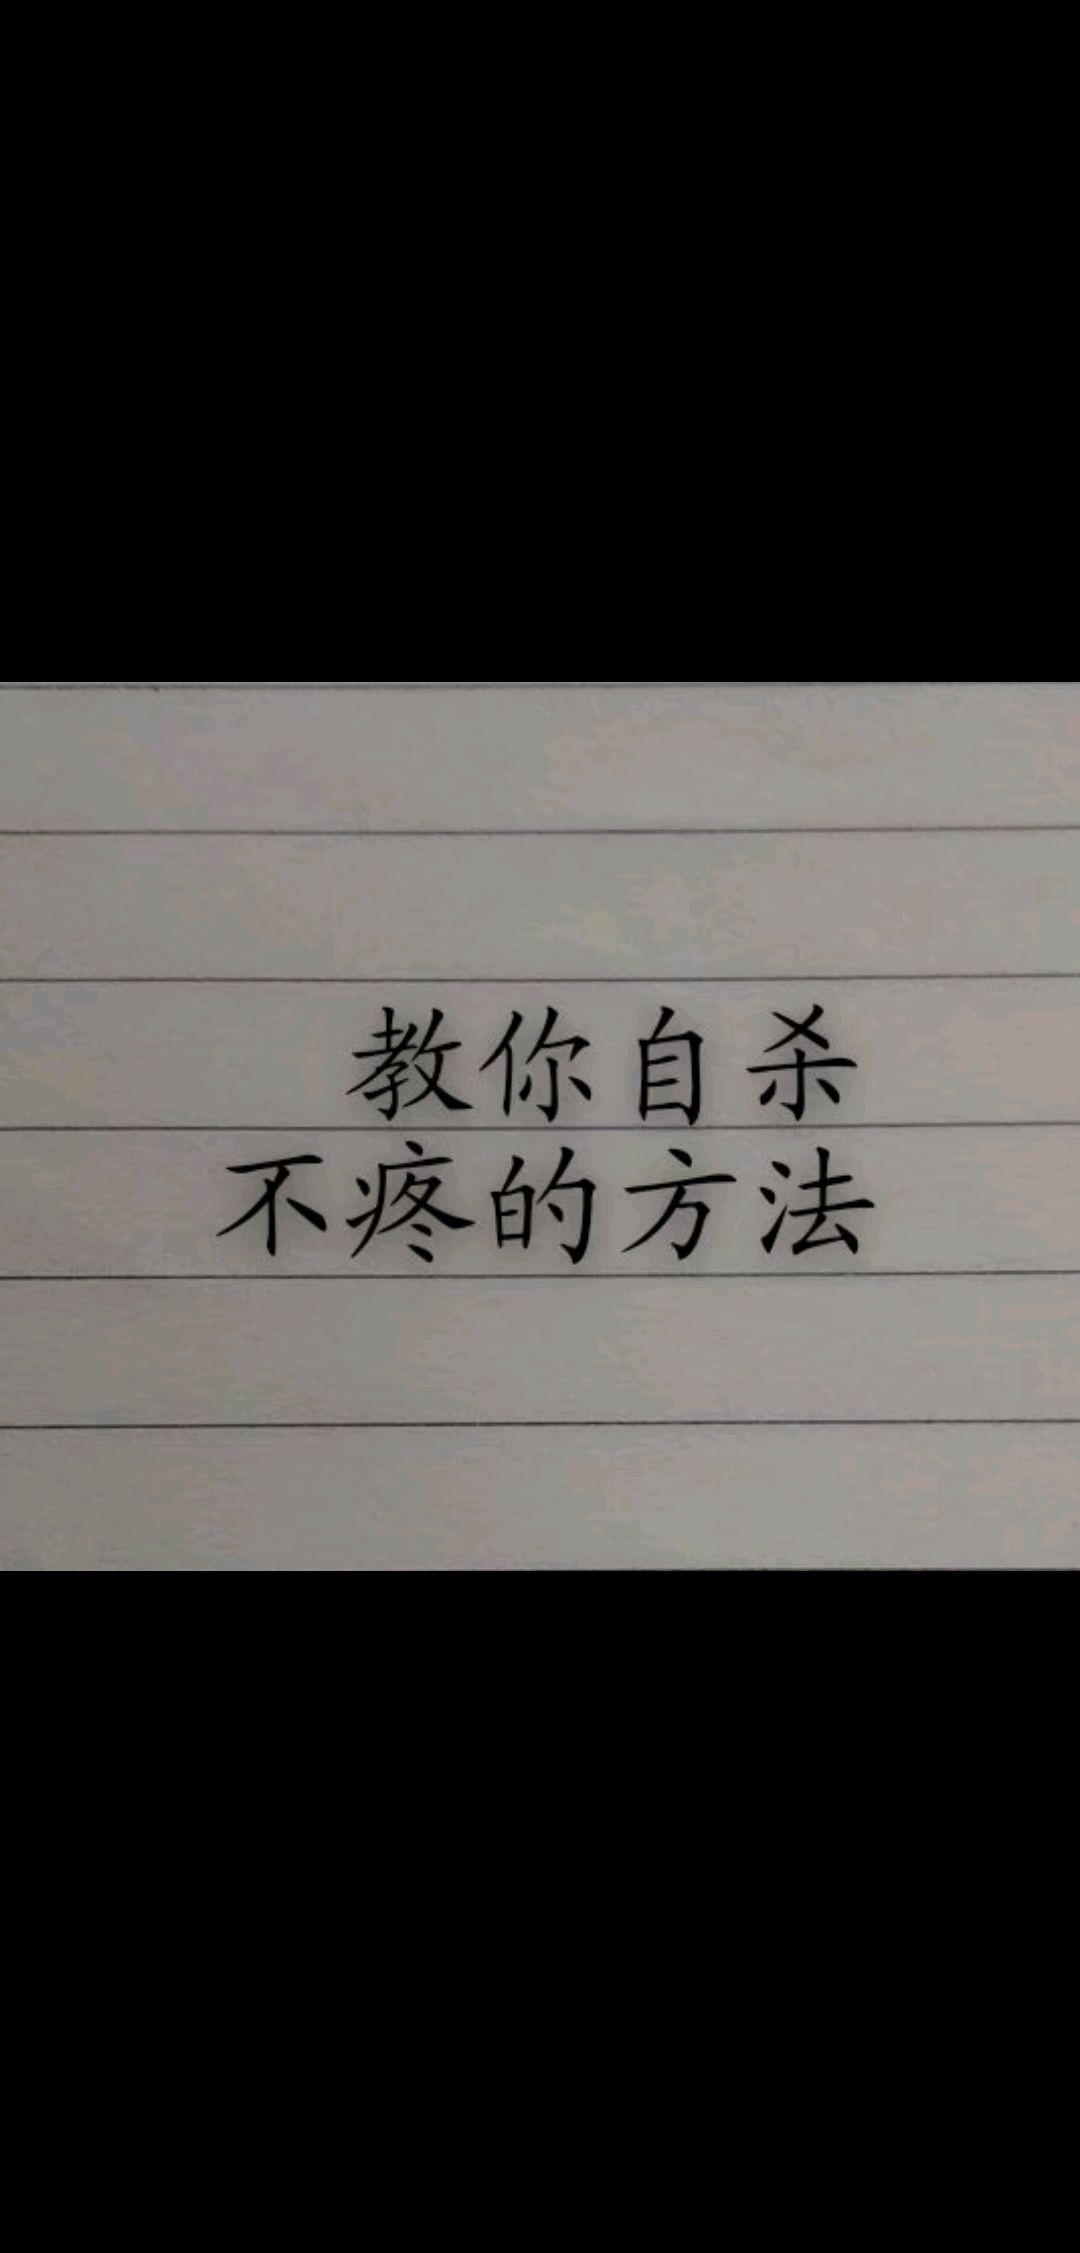 教你自杀
不疼的方法